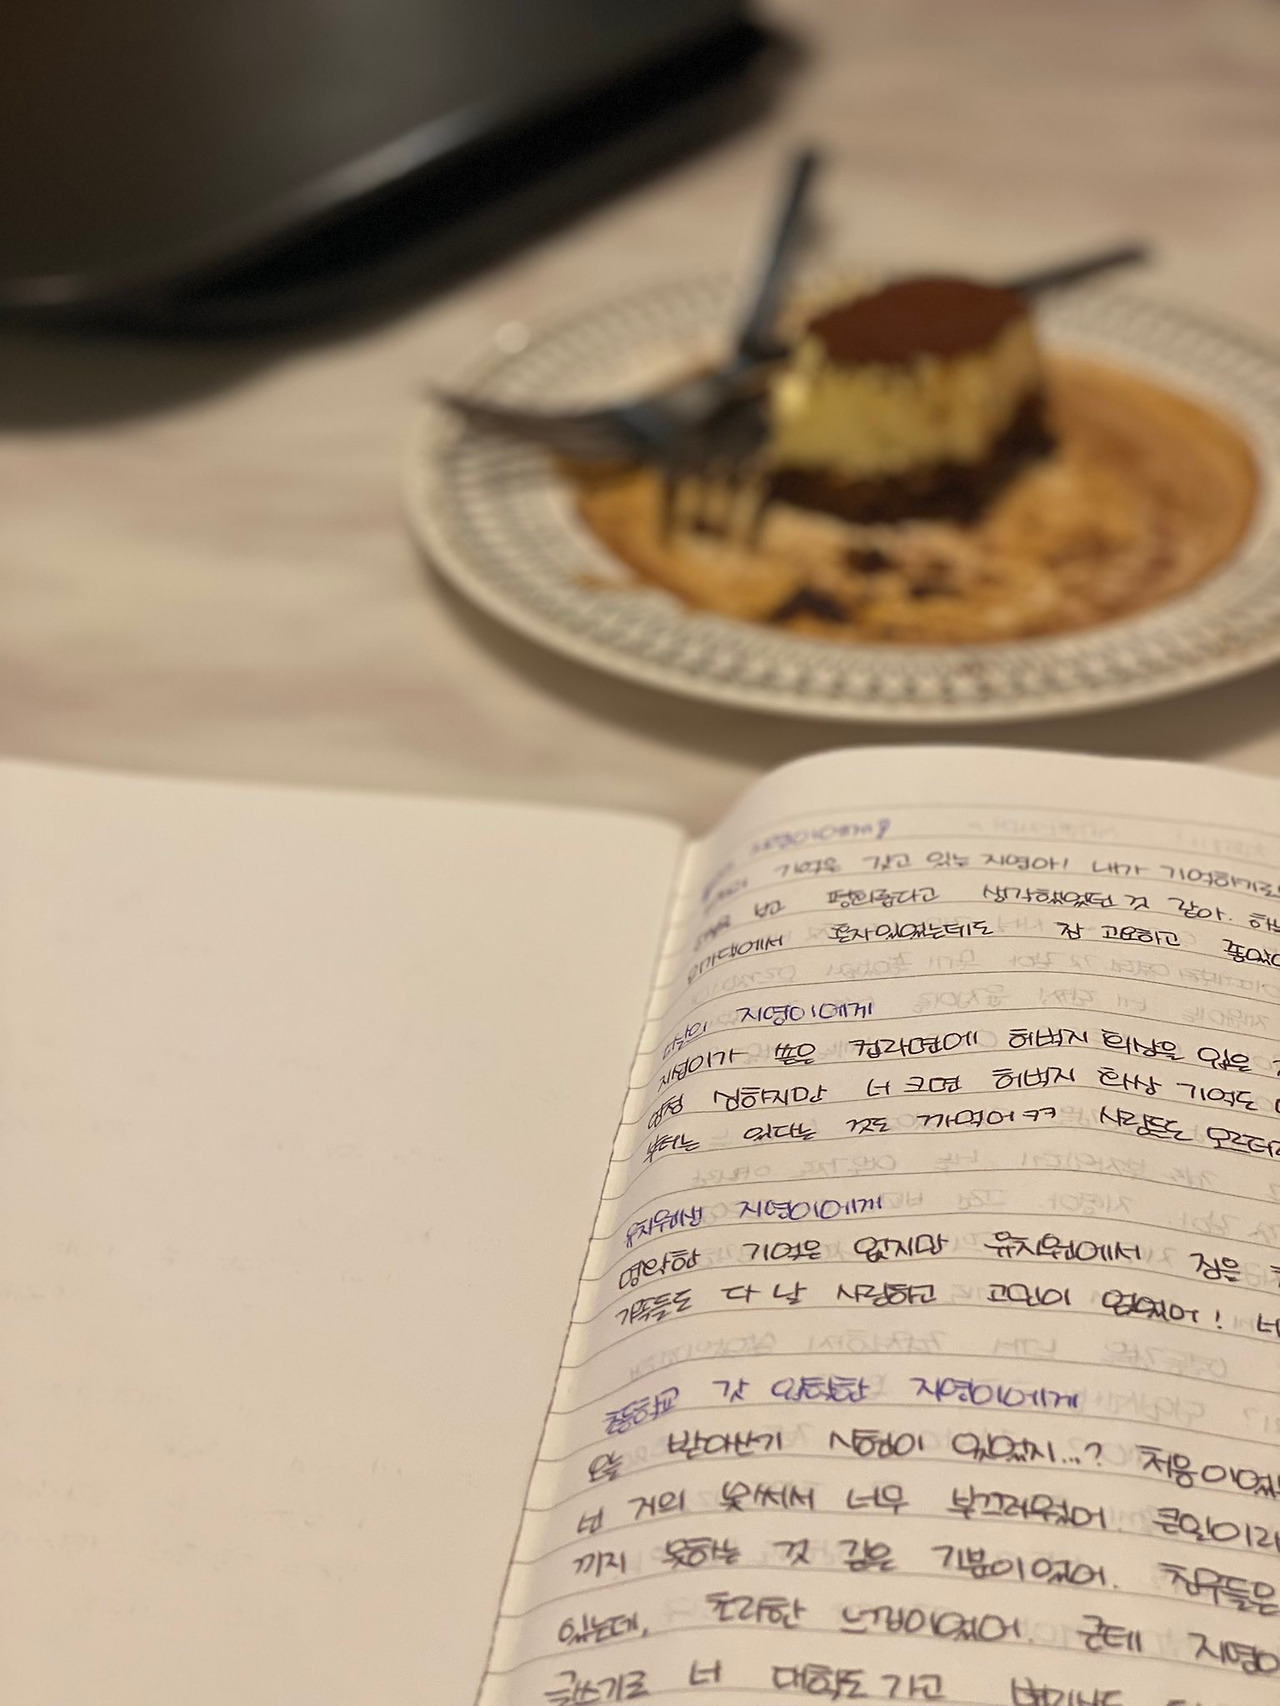 기억을 갖고 있는 지영아! 내가 기억하기로
보고 평화롭다고 생각했었던 것 같아.
혼자있었는데도 참 고요하고 좋았
지영이에게
지영이가 쏟은 컵라면에 허벅지 화상을 입은
엄청 심하지만 너 크면 허벅지 화상 기억도
부터는 있다는 것도 까먹어ㅋㅋ 사람들도 모르더라
유치원생 지영이에게
명확한 기억은 없지만 유치원에서 집은
가족들도 다 날 사랑하고 고민이 없었어! 너
초등학교 갓 입학한 지영이에게
오늘 받아쓰기 시험이 있었지...? 처음이었
넌 거의 못써서 너무 부끄러웠어. 큰일이라
까지 못하는 것 같은 기분이었어. 친구들은
있는데, 초라한 느낌이었어. 근데 지영
글쓰기로 너 대학도 가고